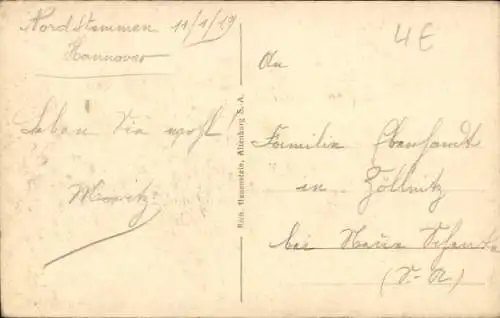 Nordstemmen 11/1/19
Hannover
Leben Sie wohl!
Moritz
Rich. Hauenstein, Altenburg S.-A.
4€
An
Familie
in Zöllnitz
bei
(S.-A)